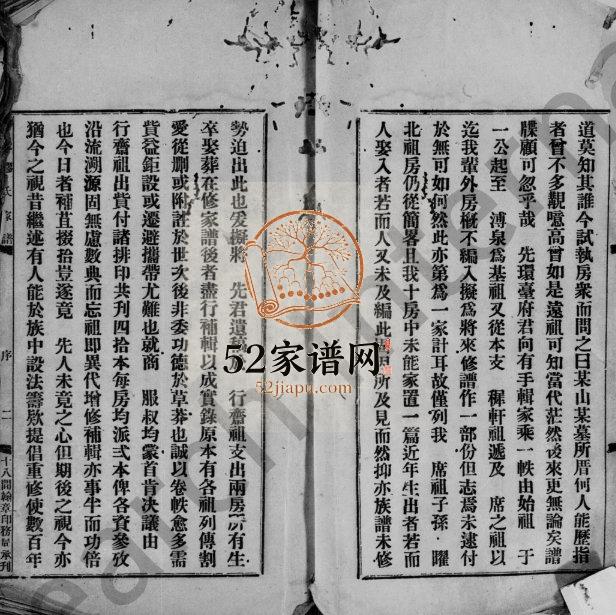 道莫知其誰今試執房衆而問之曰某山某墓所厝何人能歷指
者曾不多覯噫高曾如是遠祖可知當代茫然後來更無論矣譜
牒顧可忽乎哉 先環臺府君向有手輯家乘一帙由始祖 于
一公起至 溥泉爲基祖又從本支 穉軒祖遞及 席之祖以
迄我輩外房槪不編入擬爲將來修譜作一部份但志焉未逮付
於無可如何然此亦第爲一家計耳故僅列我 席祖子孫 曜
北祖房仍從簡畧且我十房中未能家置一篇近年生出者若而
人娶入者若而人又未及編此 所及見而然抑亦族譜未修
勢迫出此也爰擬將 先君遺 行齋祖支出兩房所有生
卒娶葬在修家譜後者盡行補輯以成實錄原本有各祖列傳割
愛從刪或附註於世次後非委功德於草莽也誠以卷帙愈多需
貲益鉅設或遷避攜帶尤難也就商 服叔均蒙首肯决議由
行齋祖出貲付諸排印共刊四拾本每房均派弍本俾各資參攷
沿流溯源固無慮數典而忘祖即異代增修補輯亦事半而功倍
也今日者補苴掇拾豈遂竟 先人未竟之心但期後之視今亦
猶今之視昔繼述有人能於族中設法籌欵提倡重修使數百年
氏家譜
序
二
十八間翰章印務局承刊
52家谱网
52jiapu.com